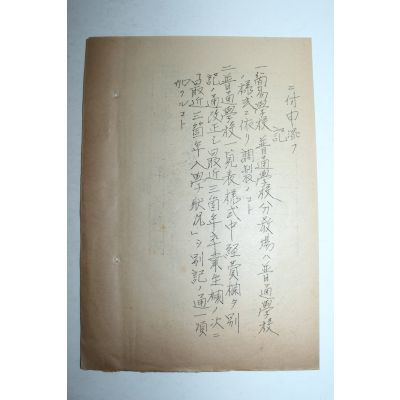 ニ付申添フ
記
一、簡易學校、普通學校分教場ハ普通學校
ノ様式ニ依リ調製ノコト
二、普通學校一覧表様式中経費欄ヲ別
記ノ通改正シ最近三箇年卒業生欄ノ次ニ
最近三箇年入學状况」ヲ別記ノ通一項
加フルコト